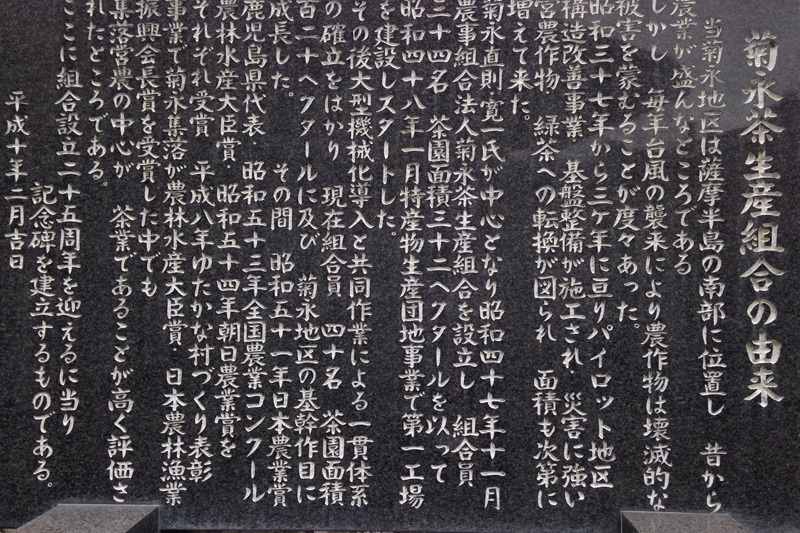 菊永茶生産組合の由来
当菊永地区は薩摩半島の南部に位置し 昔から
農業が盛んなところである
しかし 毎年台風の襲来により農作物は壊滅的な
被害を蒙むることが度々あった。
昭和三十七年から三ヶ年に亘りパイロット地区
構造改善事業 基盤整備が施工され、災害に強い
営農作物 緑茶への転換が図られ 面積も次第に
増えて来た。
菊永直則寛一氏が中心となり昭和四十七年十一月
農事組合法人菊永茶生産組合を設立し 組合員
三十四名 茶園面積三十二ヘクタールを以って
昭和四十八年一月特産物生産団地事業で第一工場
を建設しスタートした。
その後大型機械化導入と共同作業による一貫体系
の確立をはかり 現在組合員 四十名 茶園面積
百二十ヘクタールに及び 菊永地区の基幹作目に
成長した。 その間 昭和五十一年日本農業賞
鹿児島県代表、昭和五十三年全国農業コンクール
農林水産大臣賞 昭和五十四年朝日農業賞を
それぞれ受賞 平成八年ゆたかな村づくり表彰
事業で菊永集落が農林水産大臣賞、日本農林漁業
振興会長賞を受賞した中でも
集落営農の中心が 茶業であることが高く評価さ
れたところである。
ここに組合設立二十五周年を迎えるに当り
記念碑を建立するものである。
平成十年二月吉日